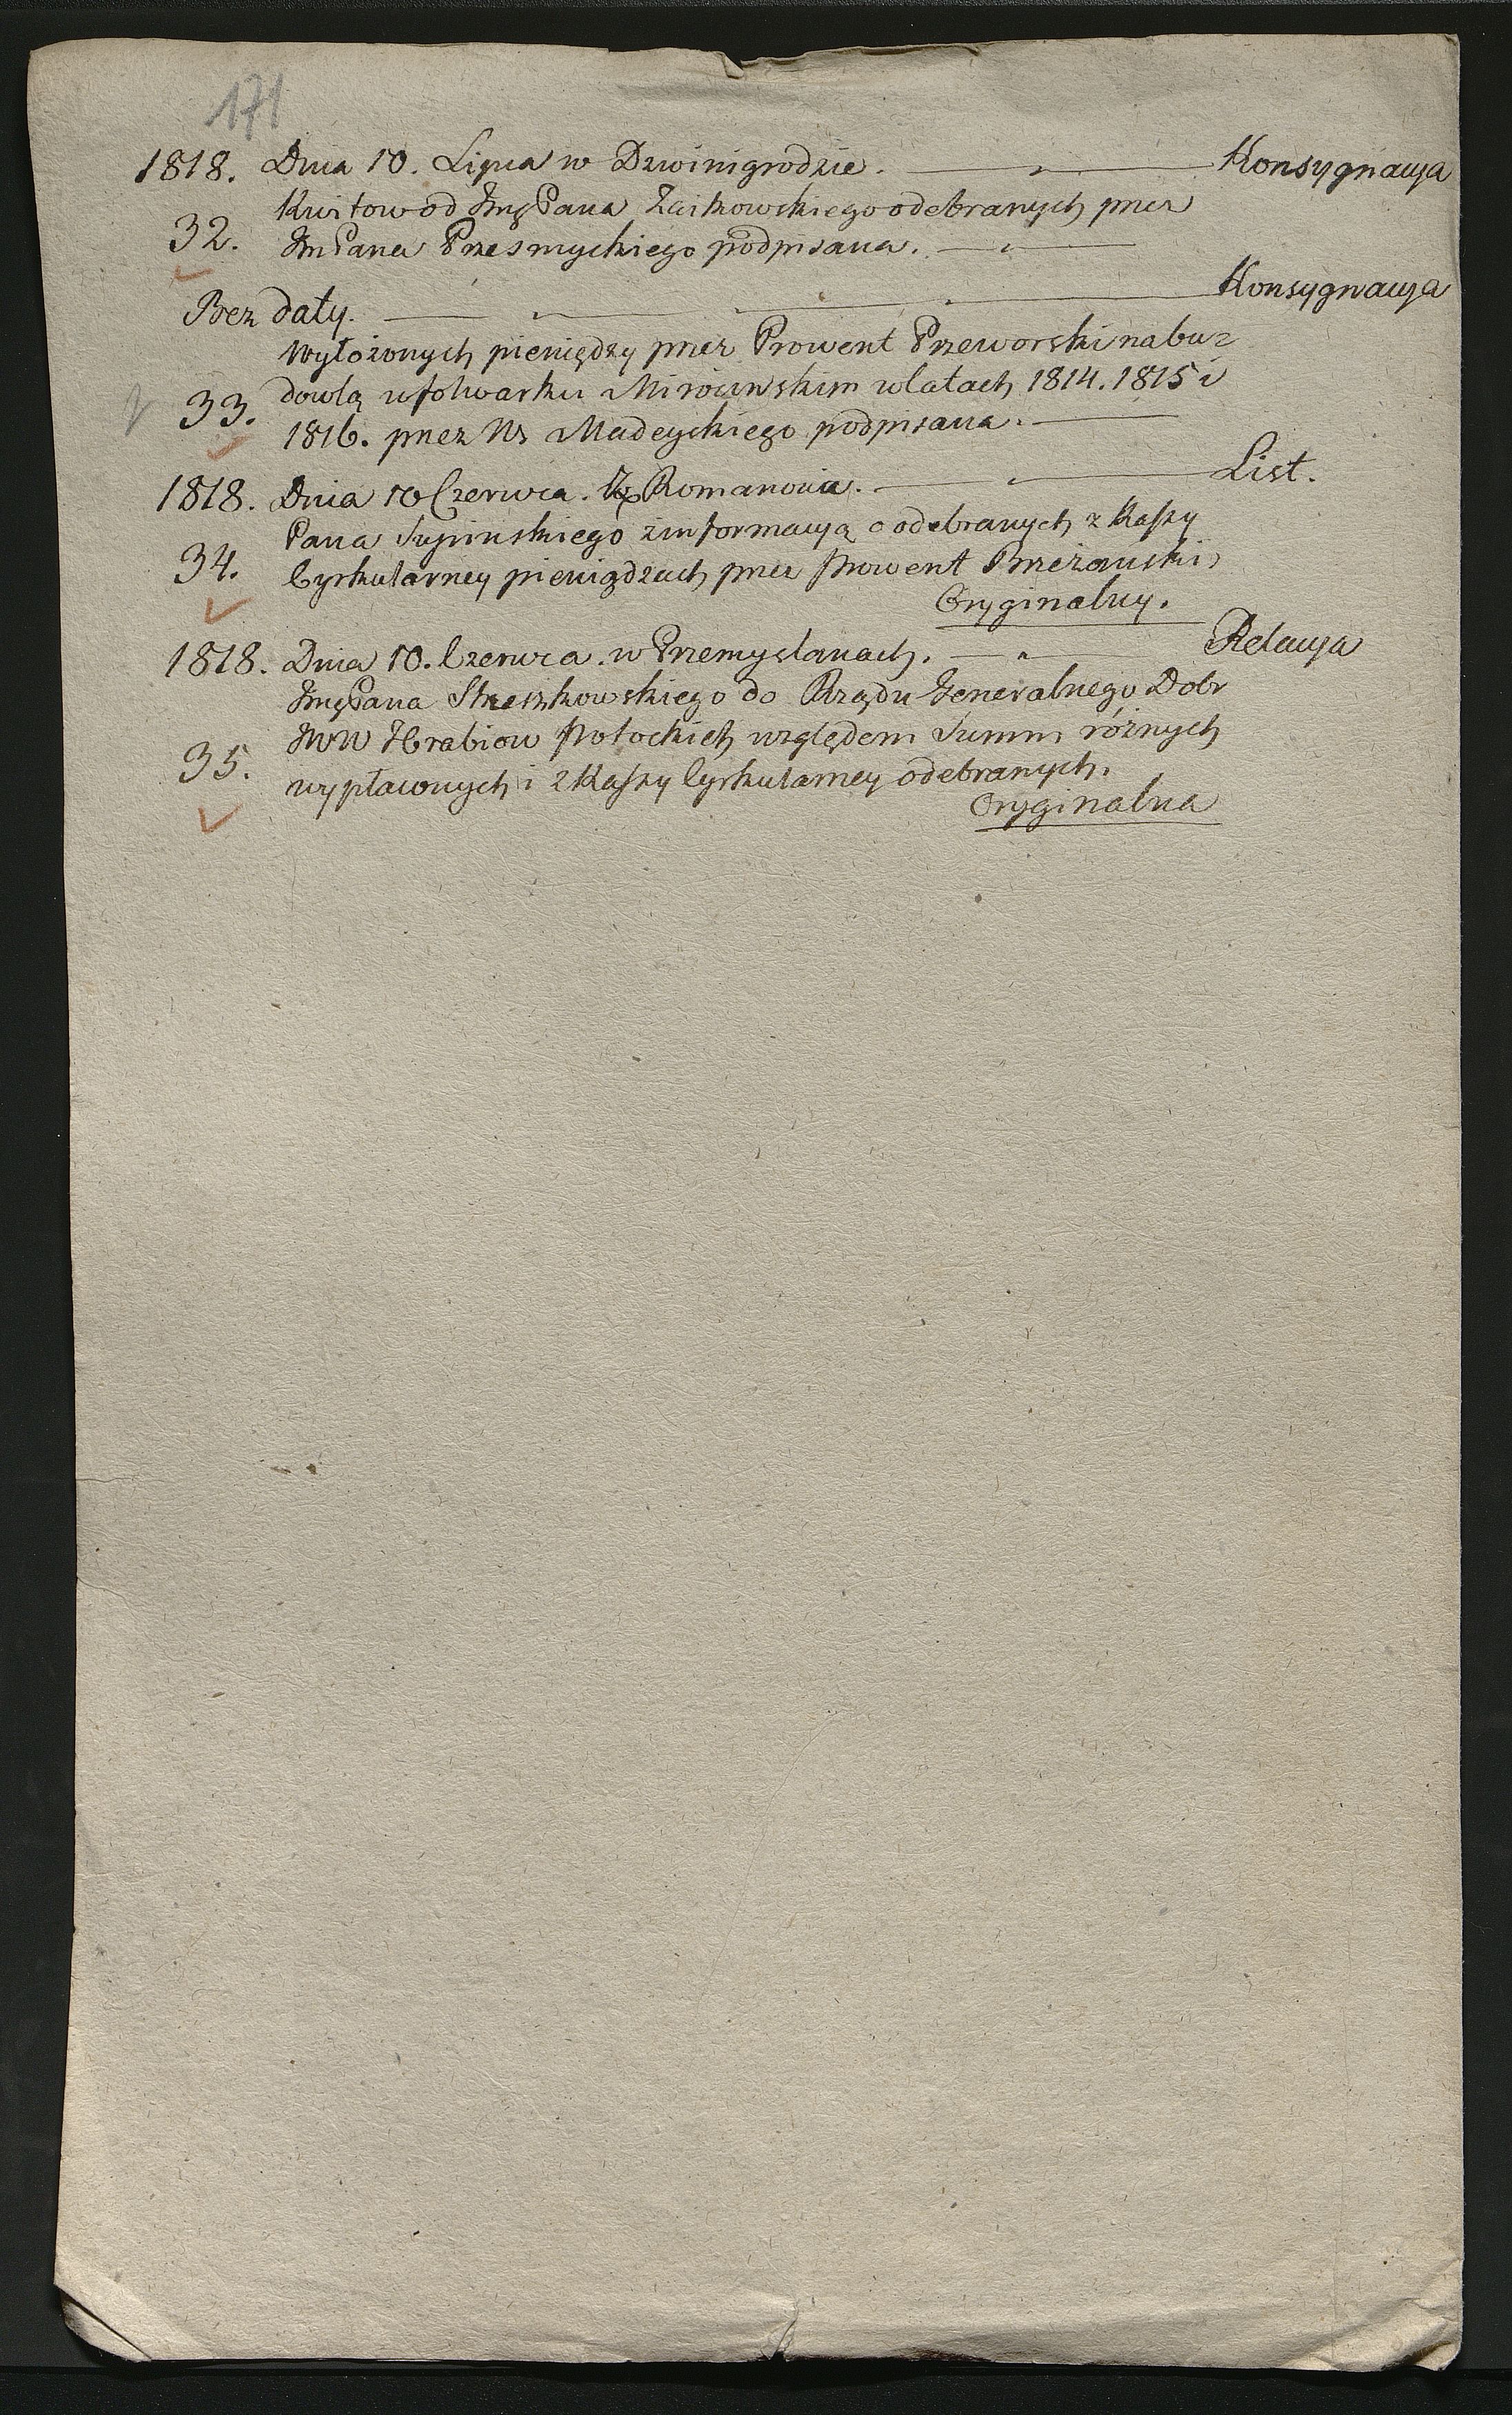 171
1818. Dnia 10. Lipca w Dzwinigrodzie. Konsygnacya
Kwitow od Jmę Pana Zaikowskiego odebranych przez
32. Jm Pana Przesmyckiego podpisana.
Bez daty. Konsygnacya
wyłożonych pieniędzy przez Prowent Przeworski na bu=
33. dowlą w folwarku Mirocinskim w latach 1814. 1815 i
1816. przez Ur Madeyskiego podpisana.
1818. Dnia 10 Czerwca. Z Romanowa. List.
Pana Supinskiego z informacyą o odebranych z Kassy
34. Cyrkularney pieniądzach przez Prowent Brzeżanski
Oryginalny.
1818. Dnia 10. Czerwca. w Przemyslanach. Relacya
Jmę Pana Strzeszkowskiego do Rządu Generalnego Dobr
JWW Hrabiow Potockich względem Summ różnych
35. wypłaconych i z Kassy Cyrkularney odebranych.
Oryginalna